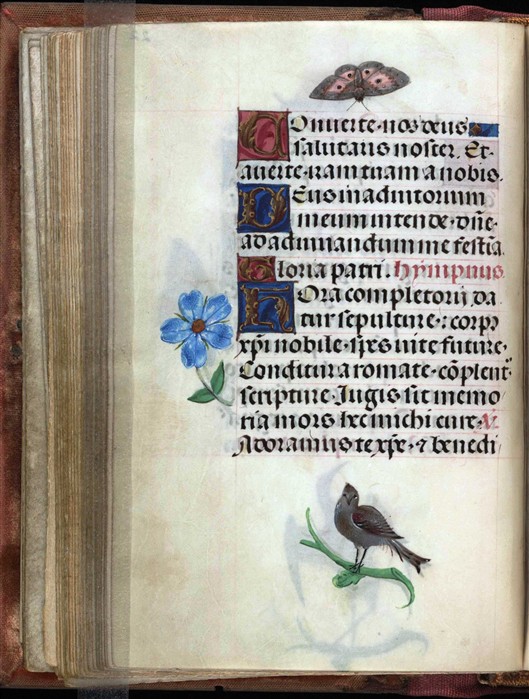 Onuerte nos deus
salutaris noster. Et
auerte iram tuam a nobis.
Deus in adiutorium
meum intende. dñe
ad adiuuandum me festiā.
Gloria patri. hympnus.
Hora completorii da
tur sepulture: corpꝰ
xp̄i nobile. spes uite future.
Conditur aromate. cōplentr̄
scripture. Jugis sit memo
ria mors hec michi cure. V.
Adoramus te xp̄e. ⁊ benedi